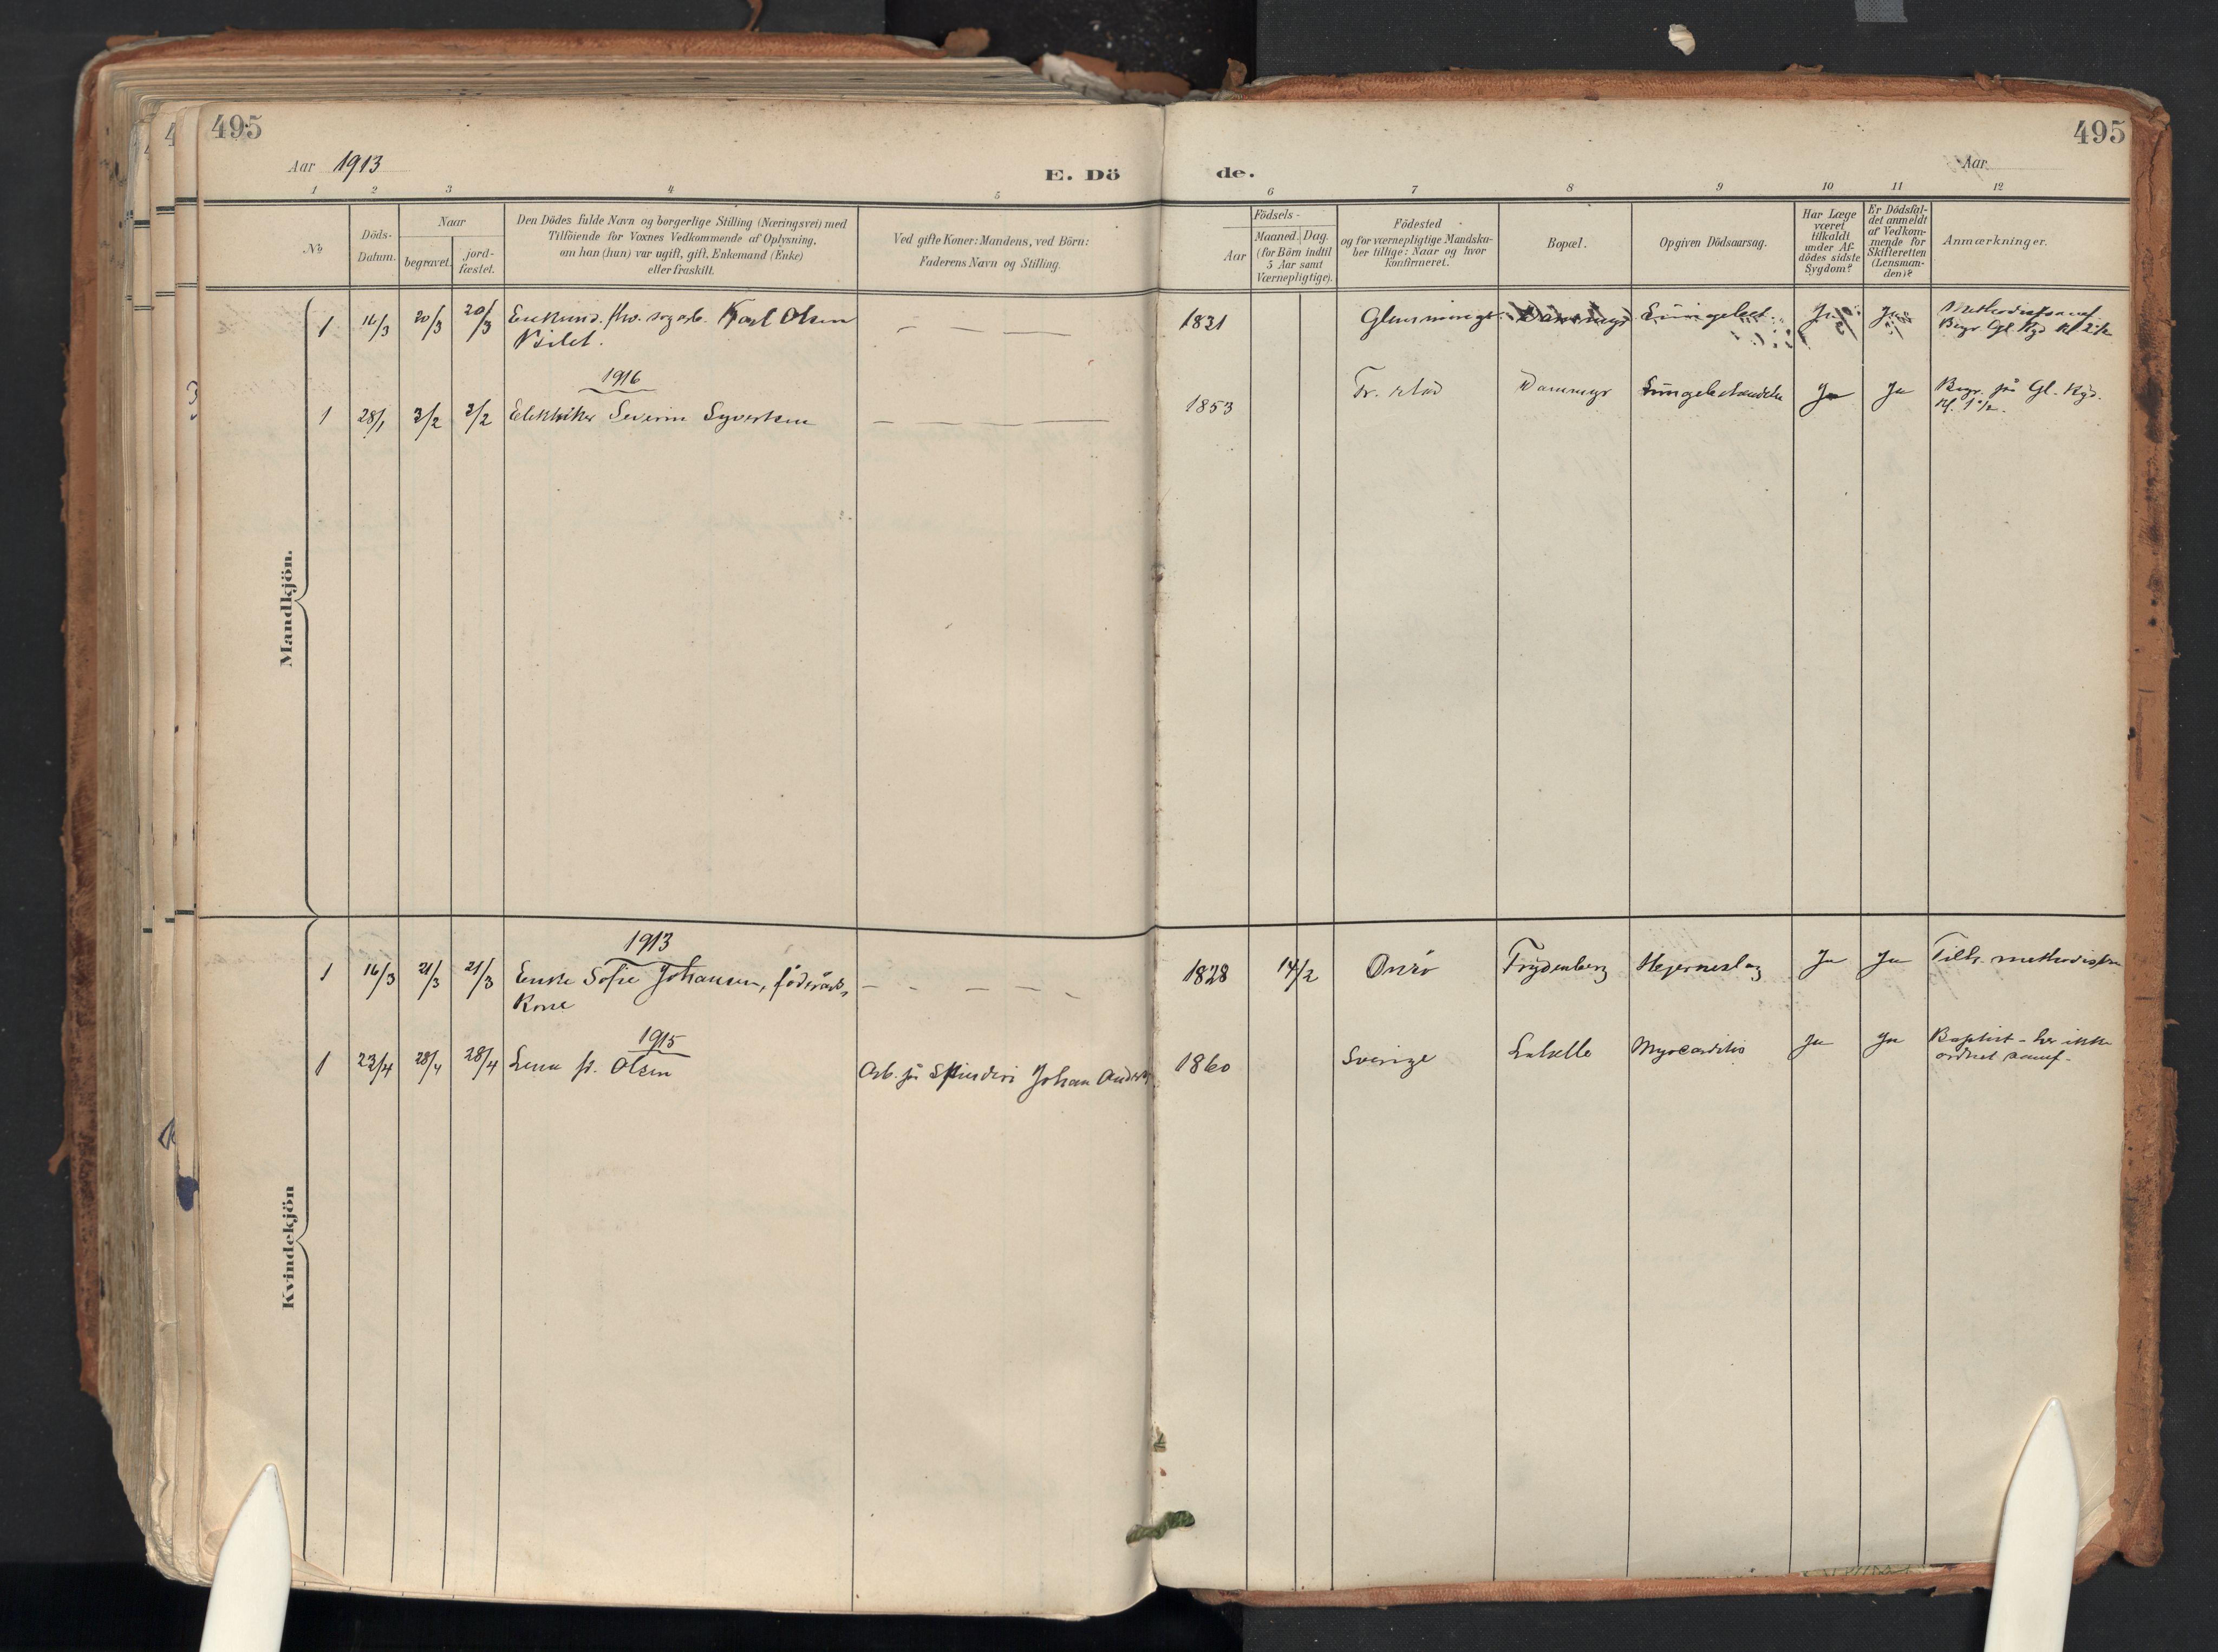 495
495
Aar 1913
E. Dö
de.
Aar
1 2 3 4 5 6 7 8 9 10 11 12
No
Döds-
Datum.
Naar
begravet.
jord-
fæstet.
Den Dödes fulde Navn og borgerlige Stilling (Næringsvei) med
Tilföiende for Voxnes Vedkommende af Oplysning,
om han (hun) var ugift, gift, Enkemand (Enke)
eller fraskilt.
Ved gifte Koner: Mandens, ved Börn:
Faderens Navn og Stilling.
Födsels-
Aar
Maaned. Dag.
(for Börn indtil
5 Aar samt
Værnepligtige).
Födested
og for værnepligtige Mandska-
ber tillige: Naar og hvor
konfirmeret.
Bopæl.
Opgiven Dödsaarsag.
Har Læge
været
tilkaldt
under Af-
dödes sidste
Sygdom?
Er Dödsfal-
det anmeldt
af Vedkom-
mende for
Skifteretten
(Lensman-
den)?
Anmærkninger.
Mandkjön.
1 16/3 20/3 20/3 Karl Olsen 1821 Ja Ja
1916
1 28/1 3/2 3/2 Elektriker Severin Syvertsen 1853 Fr.stad Dammyr Ja Ja Begr. på Gl. Kgd.
Kl. 1 1/2.
Kvindekjön
1913
1 16/3 21/3 21/3 Enke Sofie Johansen, föderåds
Kone 1828 14/2 Onsö Frydenberg Hjerneslag Ja Ja Tilh. methodistsa
1915
1 23/4 28/4 28/4 Lena f. Olsen Arb. på Spinderi Johan Anders 1860 Sverige Labella Myocarditis Ja Ja Baptist - her ikke
ordnet samf.